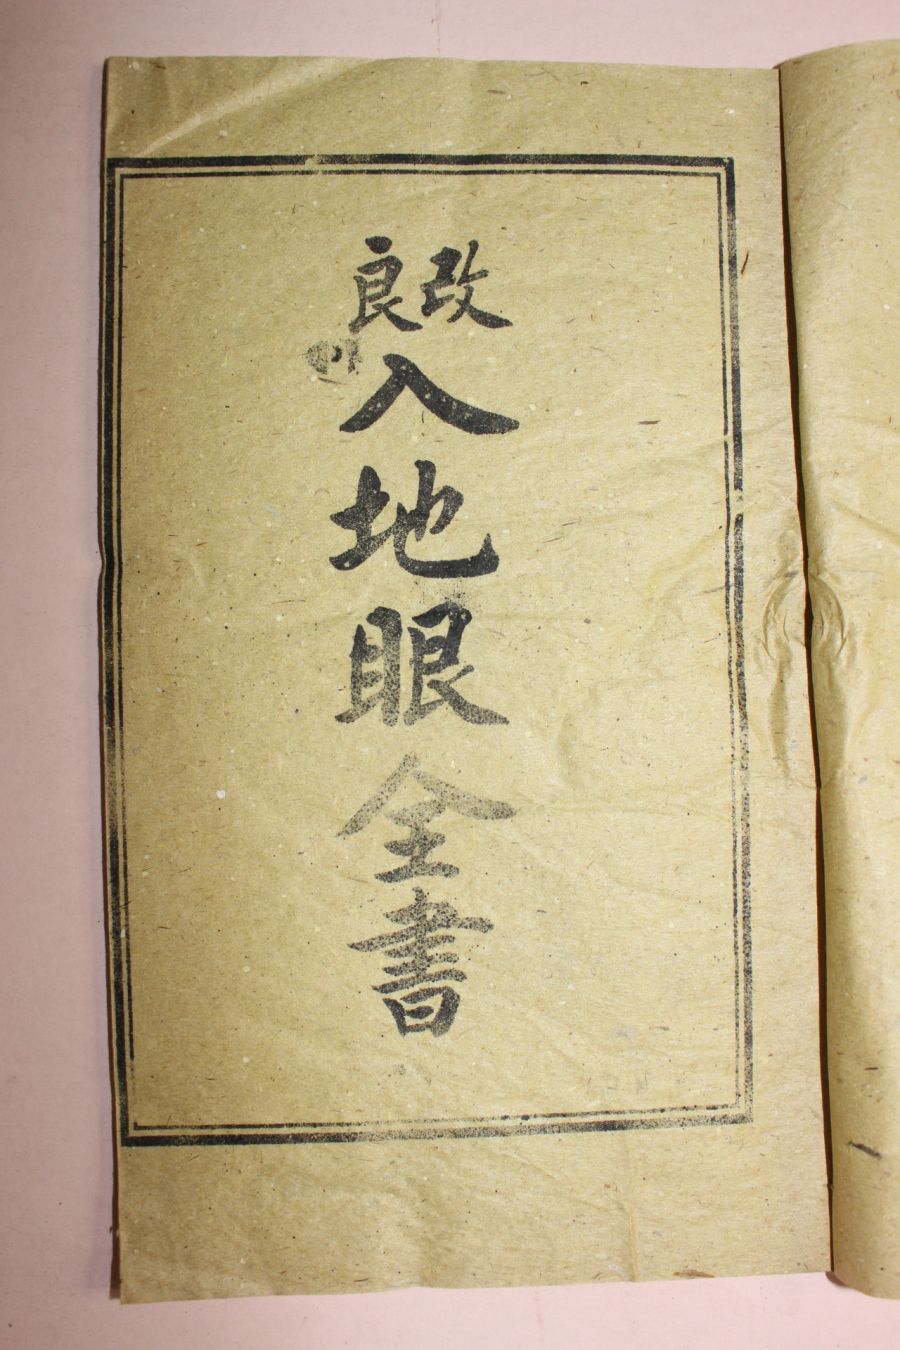 改良
入地眼全書